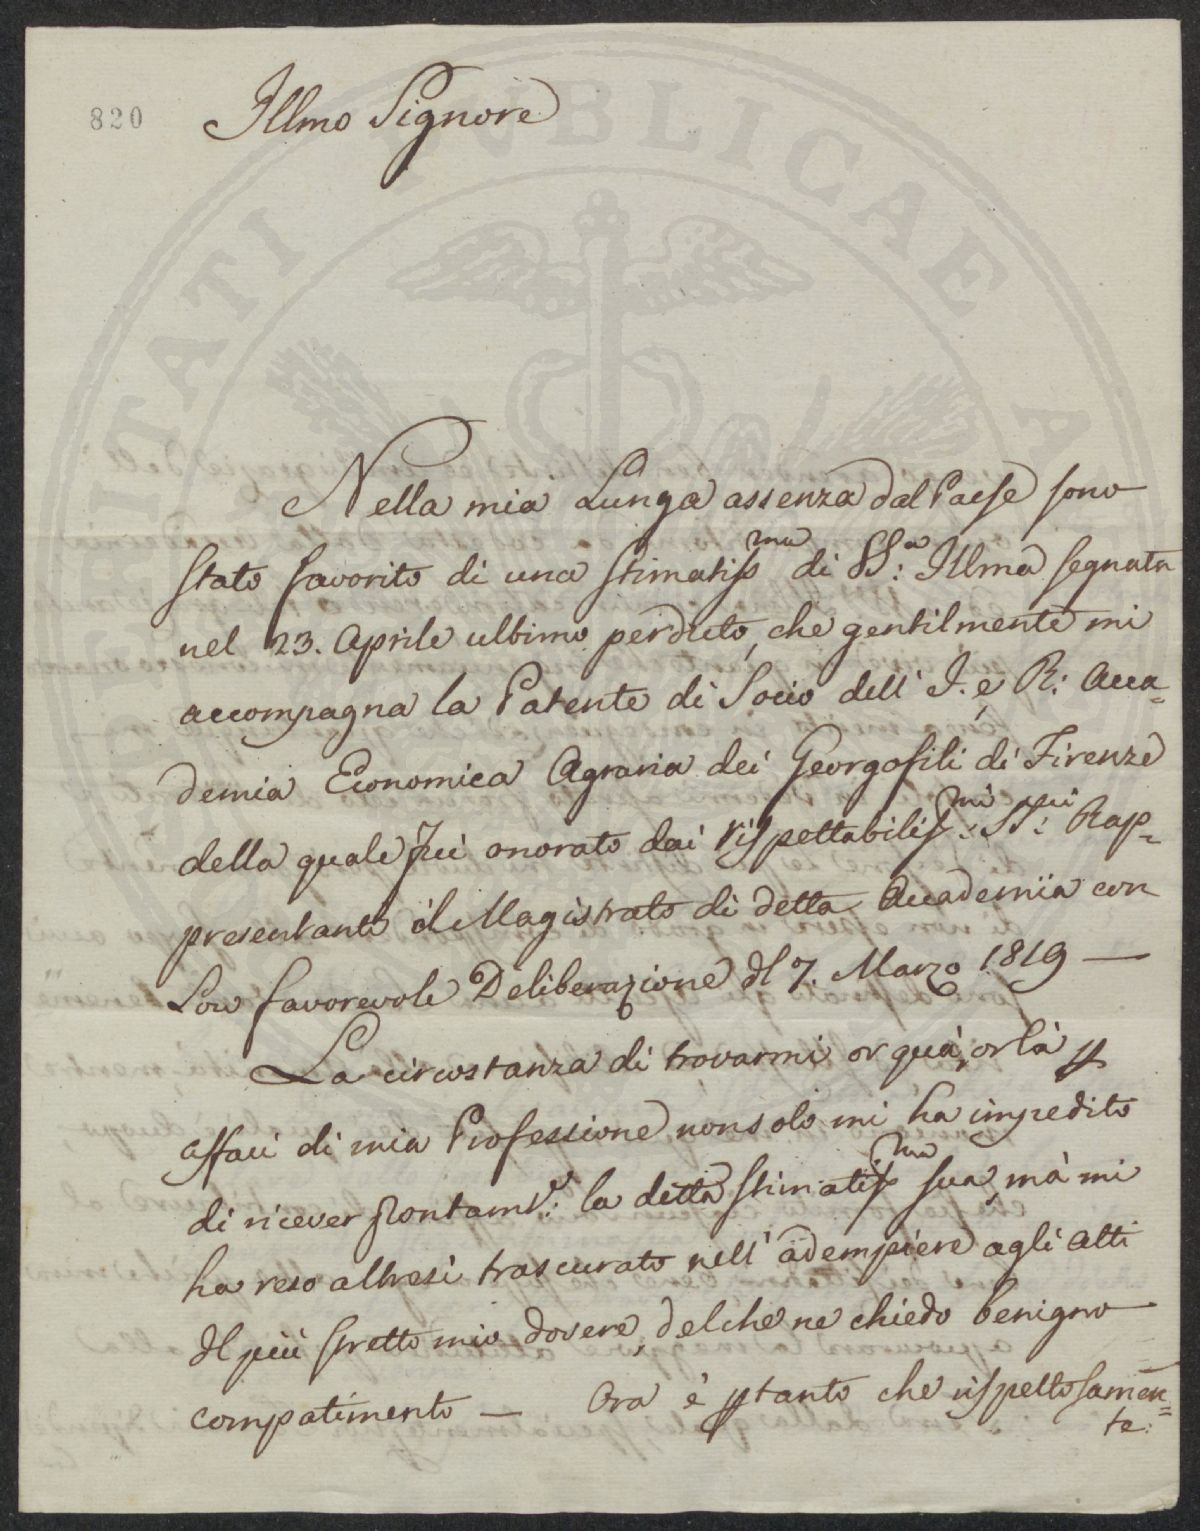 820
Illmo Signore
Nella mia Lunga assenza dal Paese sono
stato favorito di una stimatiss.ma di VS.a Illma segnata
nel 23. Aprile ultimo perduto, che gentilmente mi
accompagna la Patente di Socio dell' I. e R. Acca=
demia Economica Agraria dei Georgofili di Firenze
della quale fui onorato dai rispettabiliss.mi SS.ri Rap=
presentanti il Magistrato di detta Accademia con
Loro favorevole Deliberazione del 7. Marzo 1819 —
La circostanza di trovarmi or quà, or là p
affari di mia Professione non solo mi ha impedito
di ricever prontam.e: la detta stimatiss.ma sua, mà mi
ha reso altresì trascurato nell' adempiere agli atti
del più stretto mio dovere, del che ne chiedo benigno
compatimento — Ora è ptanto che rispettosamen=
te.
PUBLICAE